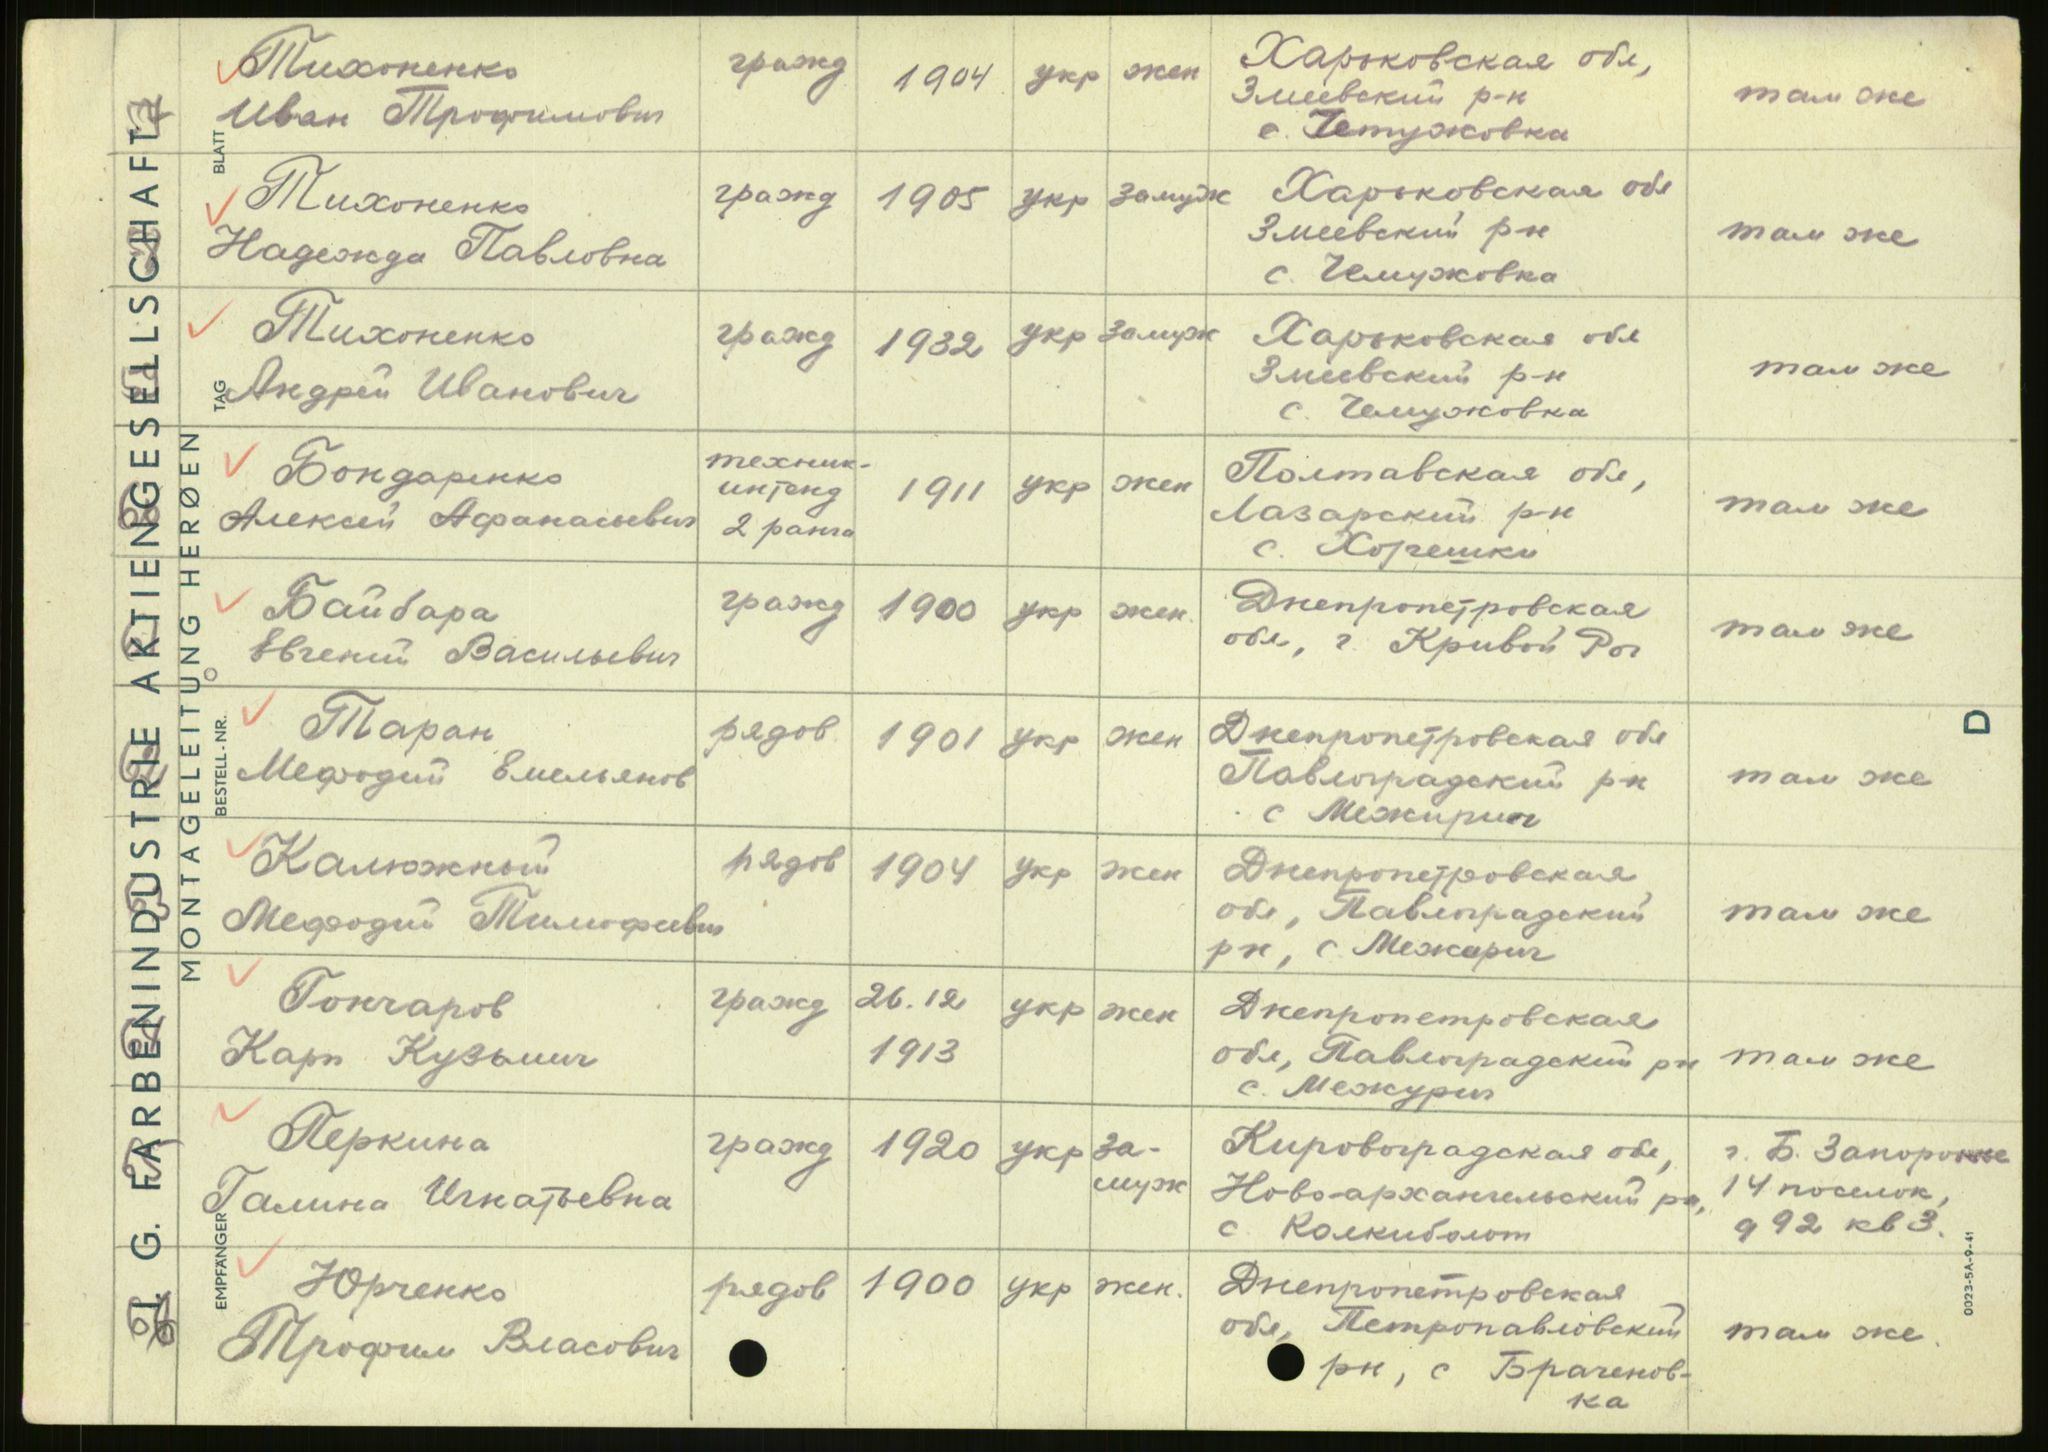 Тихоненко
Иван Трофимович
гражд
1904
укр
жен
Харьковская обл,
Змиевский р-н
с. Чемужовка
там же
Тихоненко
Надежда Павловна
гражд
1905
укр
замуж
Харьковская обл
Змиевский р-н
с. Чемужовка
там же
Тихоненко
Андрей Иванович
гражд
1932
укр
замуж
Харьковская обл
Змиевский р-н
с. Чемужовка
там же
Бондаренко
Алексей Афанасьевич
техник-
интенд
2 ранга
1911
укр
жен
Полтавская обл,
Лазарский р-н
с.
там же
Байбара
Евгений Васильевич
гражд
1900
укр
жен.
Днепропетровская
обл, г. Кривой Рог
там же
Таран
Мефодий Емельянов
рядов
1901
укр
жен
Днепропетровская обл
Павлоградский р-н
с Межирич
там же
Калюжный
Мефодий Тимофеевич
рядов
1904
укр
жен
Днепропетровская
обл, Павлоградский
р-н, с. Межирич
там же
Гончаров
Карп Кузьмич
гражд
26.12
1913
укр
жен
Днепропетровская
обл, Павлоградский рн
с. Межурич
там же
Перкина
Галина Игнатьевна
гражд
1920
укр
за-
муж
Кировоградская обл,
Ново-архангельский рн,
с. Колкиболот
г. Б. Запорожье
14 поселок,
д 92 кв 3.
Юрченко
Трофим Власович
рядов
1900
укр
жен.
Днепропетровская
обл, Петропавловский
рн, с Браченов-
ка
там же.
I. G. FARBENINDUSTRIE AKTIENGESELLSCHAFT
MONTAGELEITUNG HERØEN
EMPFÄNGER
BESTELL-NR.
TAG
BLATT
D
0023-5A-9-41